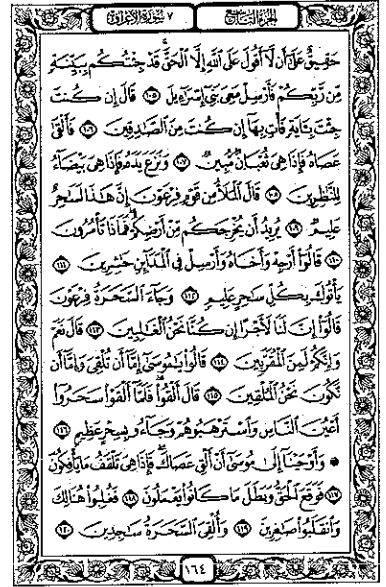 الجزء التاسع ٧ سورة الأعراف
حَقِيقٌ عَلَىٰ أَن لَّا أَقُولَ عَلَى ٱللَّهِ إِلَّا ٱلْحَقَّ قَدْ جِئْتُكُم بِبَيِّنَةٍ
مِّن رَّبِّكُمْ فَأَرْسِلْ مَعِىَ بَنِىٓ إِسْرَٰٓءِيلَ ١٠٥ قَالَ إِن كُنتَ
جِئْتَ بِـَٔايَةٍ فَأْتِ بِهَآ إِن كُنتَ مِنَ ٱلصَّـٰدِقِينَ ١٠٦ فَأَلْقَىٰ
عَصَاهُ فَإِذَا هِىَ ثُعْبَانٌ مُّبِينٌ ١٠٧ وَنَزَعَ يَدَهُۥ فَإِذَا هِىَ بَيْضَآءُ
لِلنَّـٰظِرِينَ ١٠٨ قَالَ ٱلْمَلَأُ مِن قَوْمِ فِرْعَوْنَ إِنَّ هَـٰذَا لَسَـٰحِرٌ
عَلِيمٌ ١٠٩ يُرِيدُ أَن يُخْرِجَكُم مِّنْ أَرْضِكُمْ فَمَاذَا تَأْمُرُونَ
١١٠ قَالُوٓا۟ أَرْجِهْ وَأَخَاهُ وَأَرْسِلْ فِى ٱلْمَدَآئِنِ حَـٰشِرِينَ ١١١
يَأْتُوكَ بِكُلِّ سَـٰحِرٍ عَلِيمٍ ١١٢ وَجَآءَ ٱلسَّحَرَةُ فِرْعَوْنَ
قَالُوٓا۟ إِنَّ لَنَا لَأَجْرًا إِن كُنَّا نَحْنُ ٱلْغَـٰلِبِينَ ١١٣ قَالَ نَعَمْ
وَإِنَّكُمْ لَمِنَ ٱلْمُقَرَّبِينَ ١١٤ قَالُوا۟ يَـٰمُوسَىٰٓ إِمَّآ أَن تُلْقِىَ وَإِمَّآ أَن
نَّكُونَ نَحْنُ ٱلْمُلْقِينَ ١١٥ قَالَ أَلْقُوا۟ فَلَمَّآ أَلْقَوْا۟ سَحَرُوٓا۟
أَعْيُنَ ٱلنَّاسِ وَٱسْتَرْهَبُوهُمْ وَجَآءُو بِسِحْرٍ عَظِيمٍ ١١٦
۞ وَأَوْحَيْنَآ إِلَىٰ مُوسَىٰٓ أَنْ أَلْقِ عَصَاكَ فَإِذَا هِىَ تَلْقَفُ مَا يَأْفِكُونَ
١١٧ فَوَقَعَ ٱلْحَقُّ وَبَطَلَ مَا كَانُوا۟ يَعْمَلُونَ ١١٨ فَغُلِبُوا۟ هُنَالِكَ
وَٱنقَلَبُوا۟ صَـٰغِرِينَ ١١٩ وَأُلْقِىَ ٱلسَّحَرَةُ سَـٰجِدِينَ ١٢٠
١٦٤